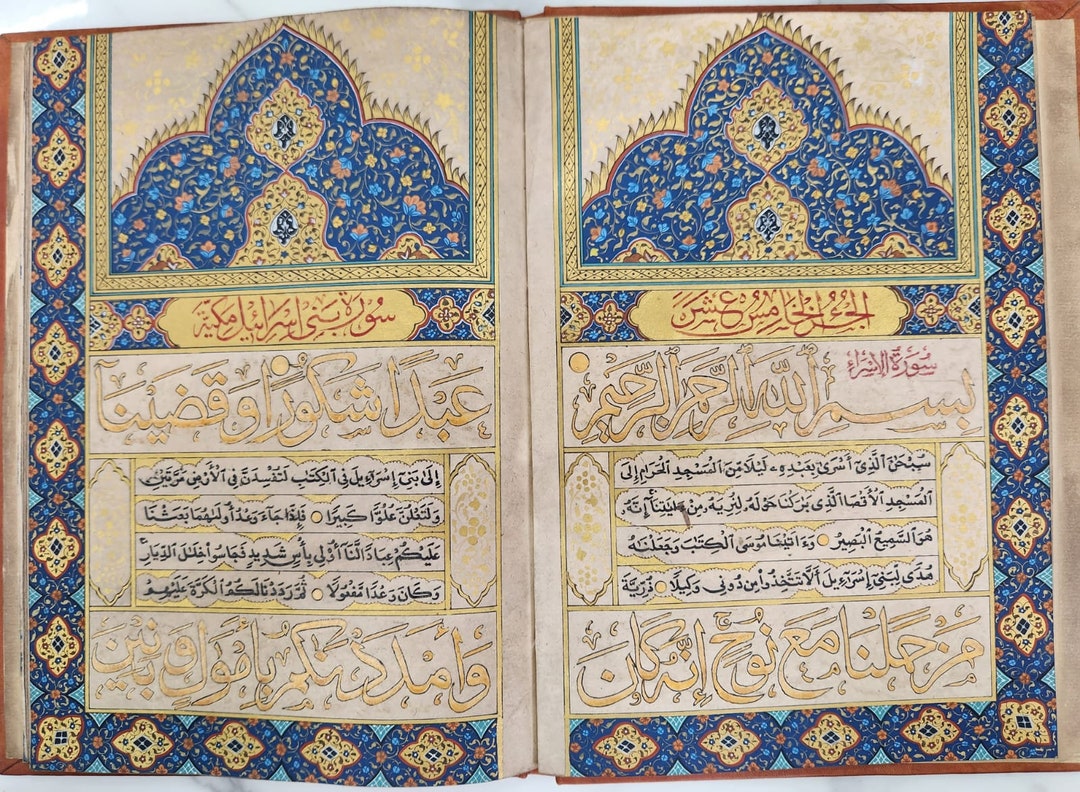 الجزء الخامس عشر
سورة الإسراء
بسم الله الرحمن الرحيم
سُبْحَٰنَ ٱلَّذِىٓ أَسْرَىٰ بِعَبْدِهِۦ لَيْلًا مِّنَ ٱلْمَسْجِدِ ٱلْحَرَامِ إِلَى
ٱلْمَسْجِدِ ٱلْأَقْصَا ٱلَّذِى بَٰرَكْنَا حَوْلَهُۥ لِنُرِيَهُۥ مِنْ ءَايَٰتِنَآ إِنَّهُۥ
هُوَ ٱلسَّمِيعُ ٱلْبَصِيرُ وَءَاتَيْنَا مُوسَى ٱلْكِتَٰبَ وَجَعَلْنَٰهُ
هُدًى لِّبَنِىٓ إِسْرَٰٓءِيلَ أَلَّا تَتَّخِذُوا۟ مِن دُونِى وَكِيلًا ذُرِّيَّةَ
مَنْ حَمَلْنَا مَعَ نُوحٍ إِنَّهُۥ كَانَ
سورة بنى اسرائيل مكية
عَبْدًا شَكُورًا وَقَضَيْنَآ
إِلَىٰ بَنِىٓ إِسْرَٰٓءِيلَ فِى ٱلْكِتَٰبِ لَتُفْسِدُنَّ فِى ٱلْأَرْضِ مَرَّتَيْنِ
وَلَتَعْلُنَّ عُلُوًّا كَبِيرًا فَإِذَا جَآءَ وَعْدُ أُولَىٰهُمَا بَعَثْنَا
عَلَيْكُمْ عِبَادًا لَّنَآ أُو۟لِى بَأْسٍ شَدِيدٍ فَجَاسُوا۟ خِلَٰلَ ٱلدِّيَارِ
وَكَانَ وَعْدًا مَّفْعُولًا ثُمَّ رَدَدْنَا لَكُمُ ٱلْكَرَّةَ عَلَيْهِمْ
وَأَمْدَدْنَٰكُم بِأَمْوَٰلٍ وَبَنِينَ